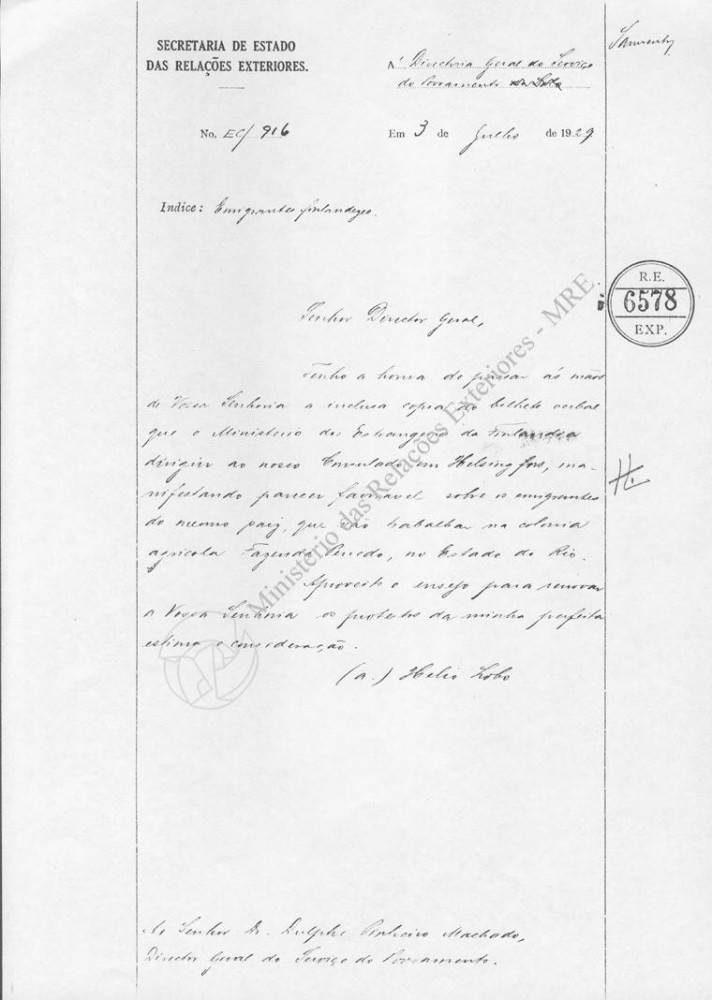 SECRETARIA DE ESTADO
DAS RELAÇÕES EXTERIORES.
A' Directoria Geral do Serviço
do Povoamento
No. EC/ 916
Em 3 de Julho de 1929
Indice: Emigrantes finlandezes.
R.E.
6578
EXP.
Senhor Director Geral,
Tenho a honra de passar ás mãos
de Vossa Senhoria a inclusa copia do bilhete verbal
que o Ministerio dos Estrangeiros da Finlandia
dirigiu ao nosso Consulado em Helsingfors, ma-
nifestando parecer favoravel sobre os emigrantes
do mesmo paiz, que vão trabalhar na colonia
agricola Fazenda Penedo, no Estado do Rio.
Aproveito o ensejo para renovar
a Vossa Senhoria os protestos da minha perfeita
estima e consideração.
(a.) Helio Lobo
Ao Senhor Dr. Dulphe Pinheiro Machado,
Director Geral do Serviço do Povoamento.
Ministério das Relações Exteriores - MRE